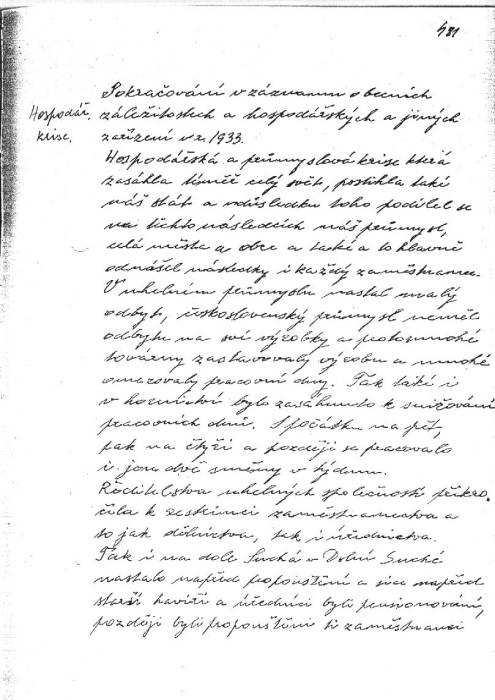 431
Pokračování v záznamu o obecních
Hospodář.
krise.
záležitostech a hospodářských a jiných
zařízení v r. 1933.
Hospodářská a průmyslová krise která
zasáhla téměř celý svět, postihla také
náš stát a v důsledku toho podílel se
na těchto následcích náš průmysl,
celá města a obce a také a to hlavně
odnášel následky i každý zaměstnanec.
V uhelném průmyslu nastal malý
odbyt, československý průmysl neměl
odbytu na své výrobky a proto mnohé
továrny zastavovaly výrobu a mnohé
omezovaly pracovní dny. Tak také i
v hornictví bylo zasáhnuto k snižování
pracovních dnů. S počátku na pět,
pak na čtyři a později se pracovalo
i jen dvě směny v týdnu.
Ředitelstva uhelných společností přikro-
čila k restrinci zaměstnanectva a
to jak dělnictva, tak i úřednictva.
Tak i na dole Suchá v Dolní Suché
nastalo napřed propouštění a sice napřed
starší havíři a úředníci byli pensionováni,
později byli propouštěni ti zaměstnanci